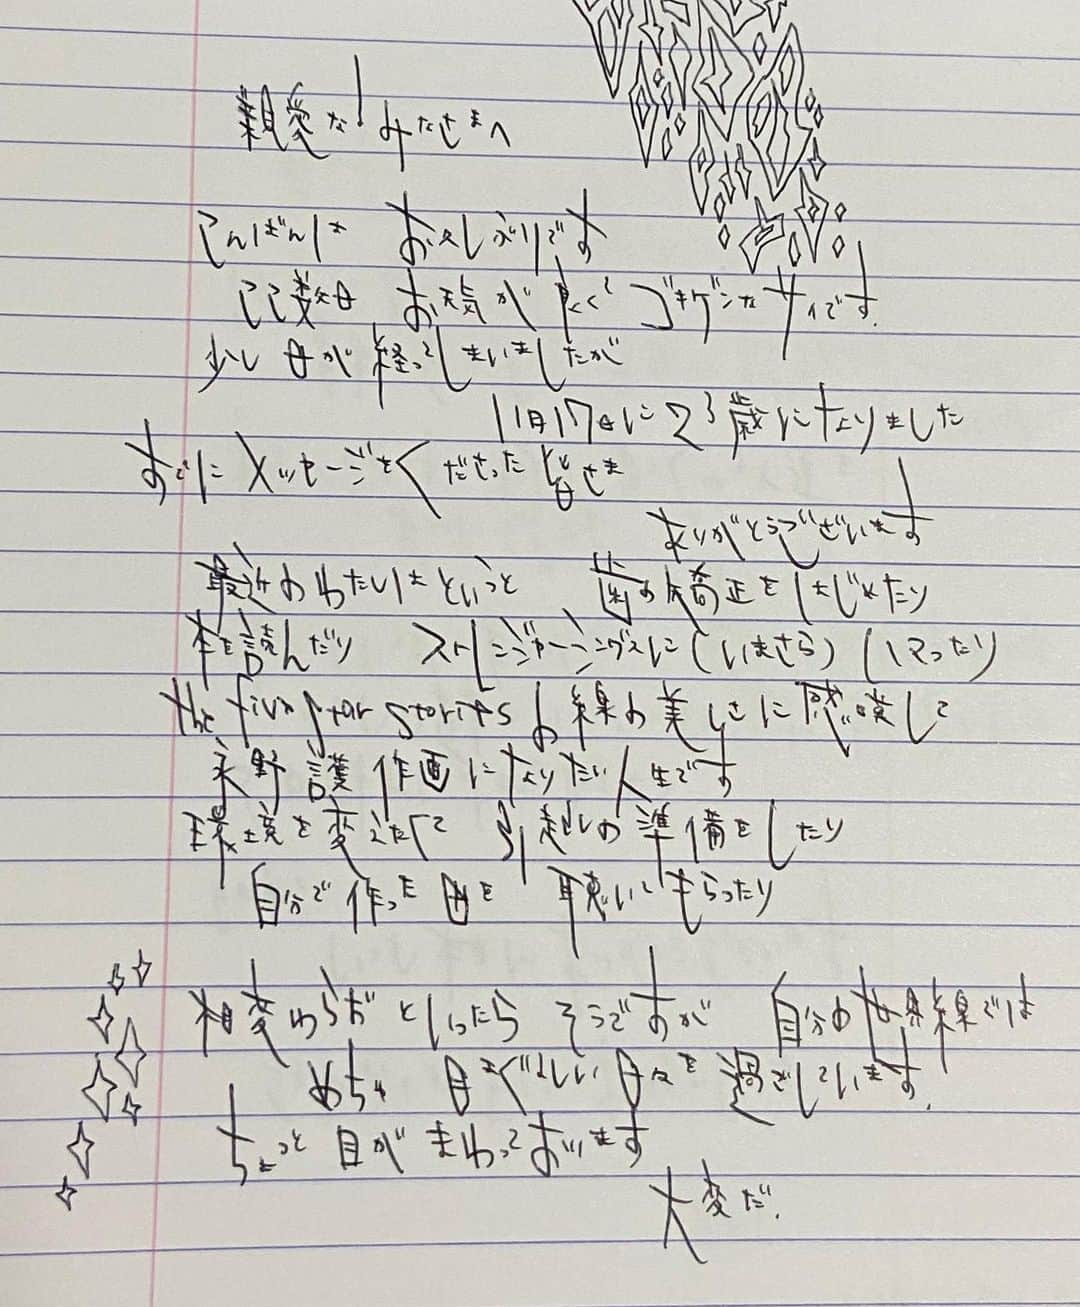 親愛な!みなさまへ
こんばんは お久しぶりです
ここ数日 お天気が良くて ゴキゲンなサイです.
少し日が経ってしまいましたが
11月17日に23歳になりました
すでにメッセージをくださった皆さま
ありがとうございます
最近のわたしはというと 歯の矯正をはじめたり
本を読んだり ストレンジャーシングスに(いまさら)ハマったり
the five star stories の線の美しさに感嘆して
永野護作画になりたい人生です
環境を変えたくて 引越しの準備をしたり
自分で作った曲を 聴いてもらったり
相変わらず といったら そうですが 自分の世界線では
めちゃ 目まぐるしい日々を過ごしています.
ちょっと目がまわっております
大変だ.